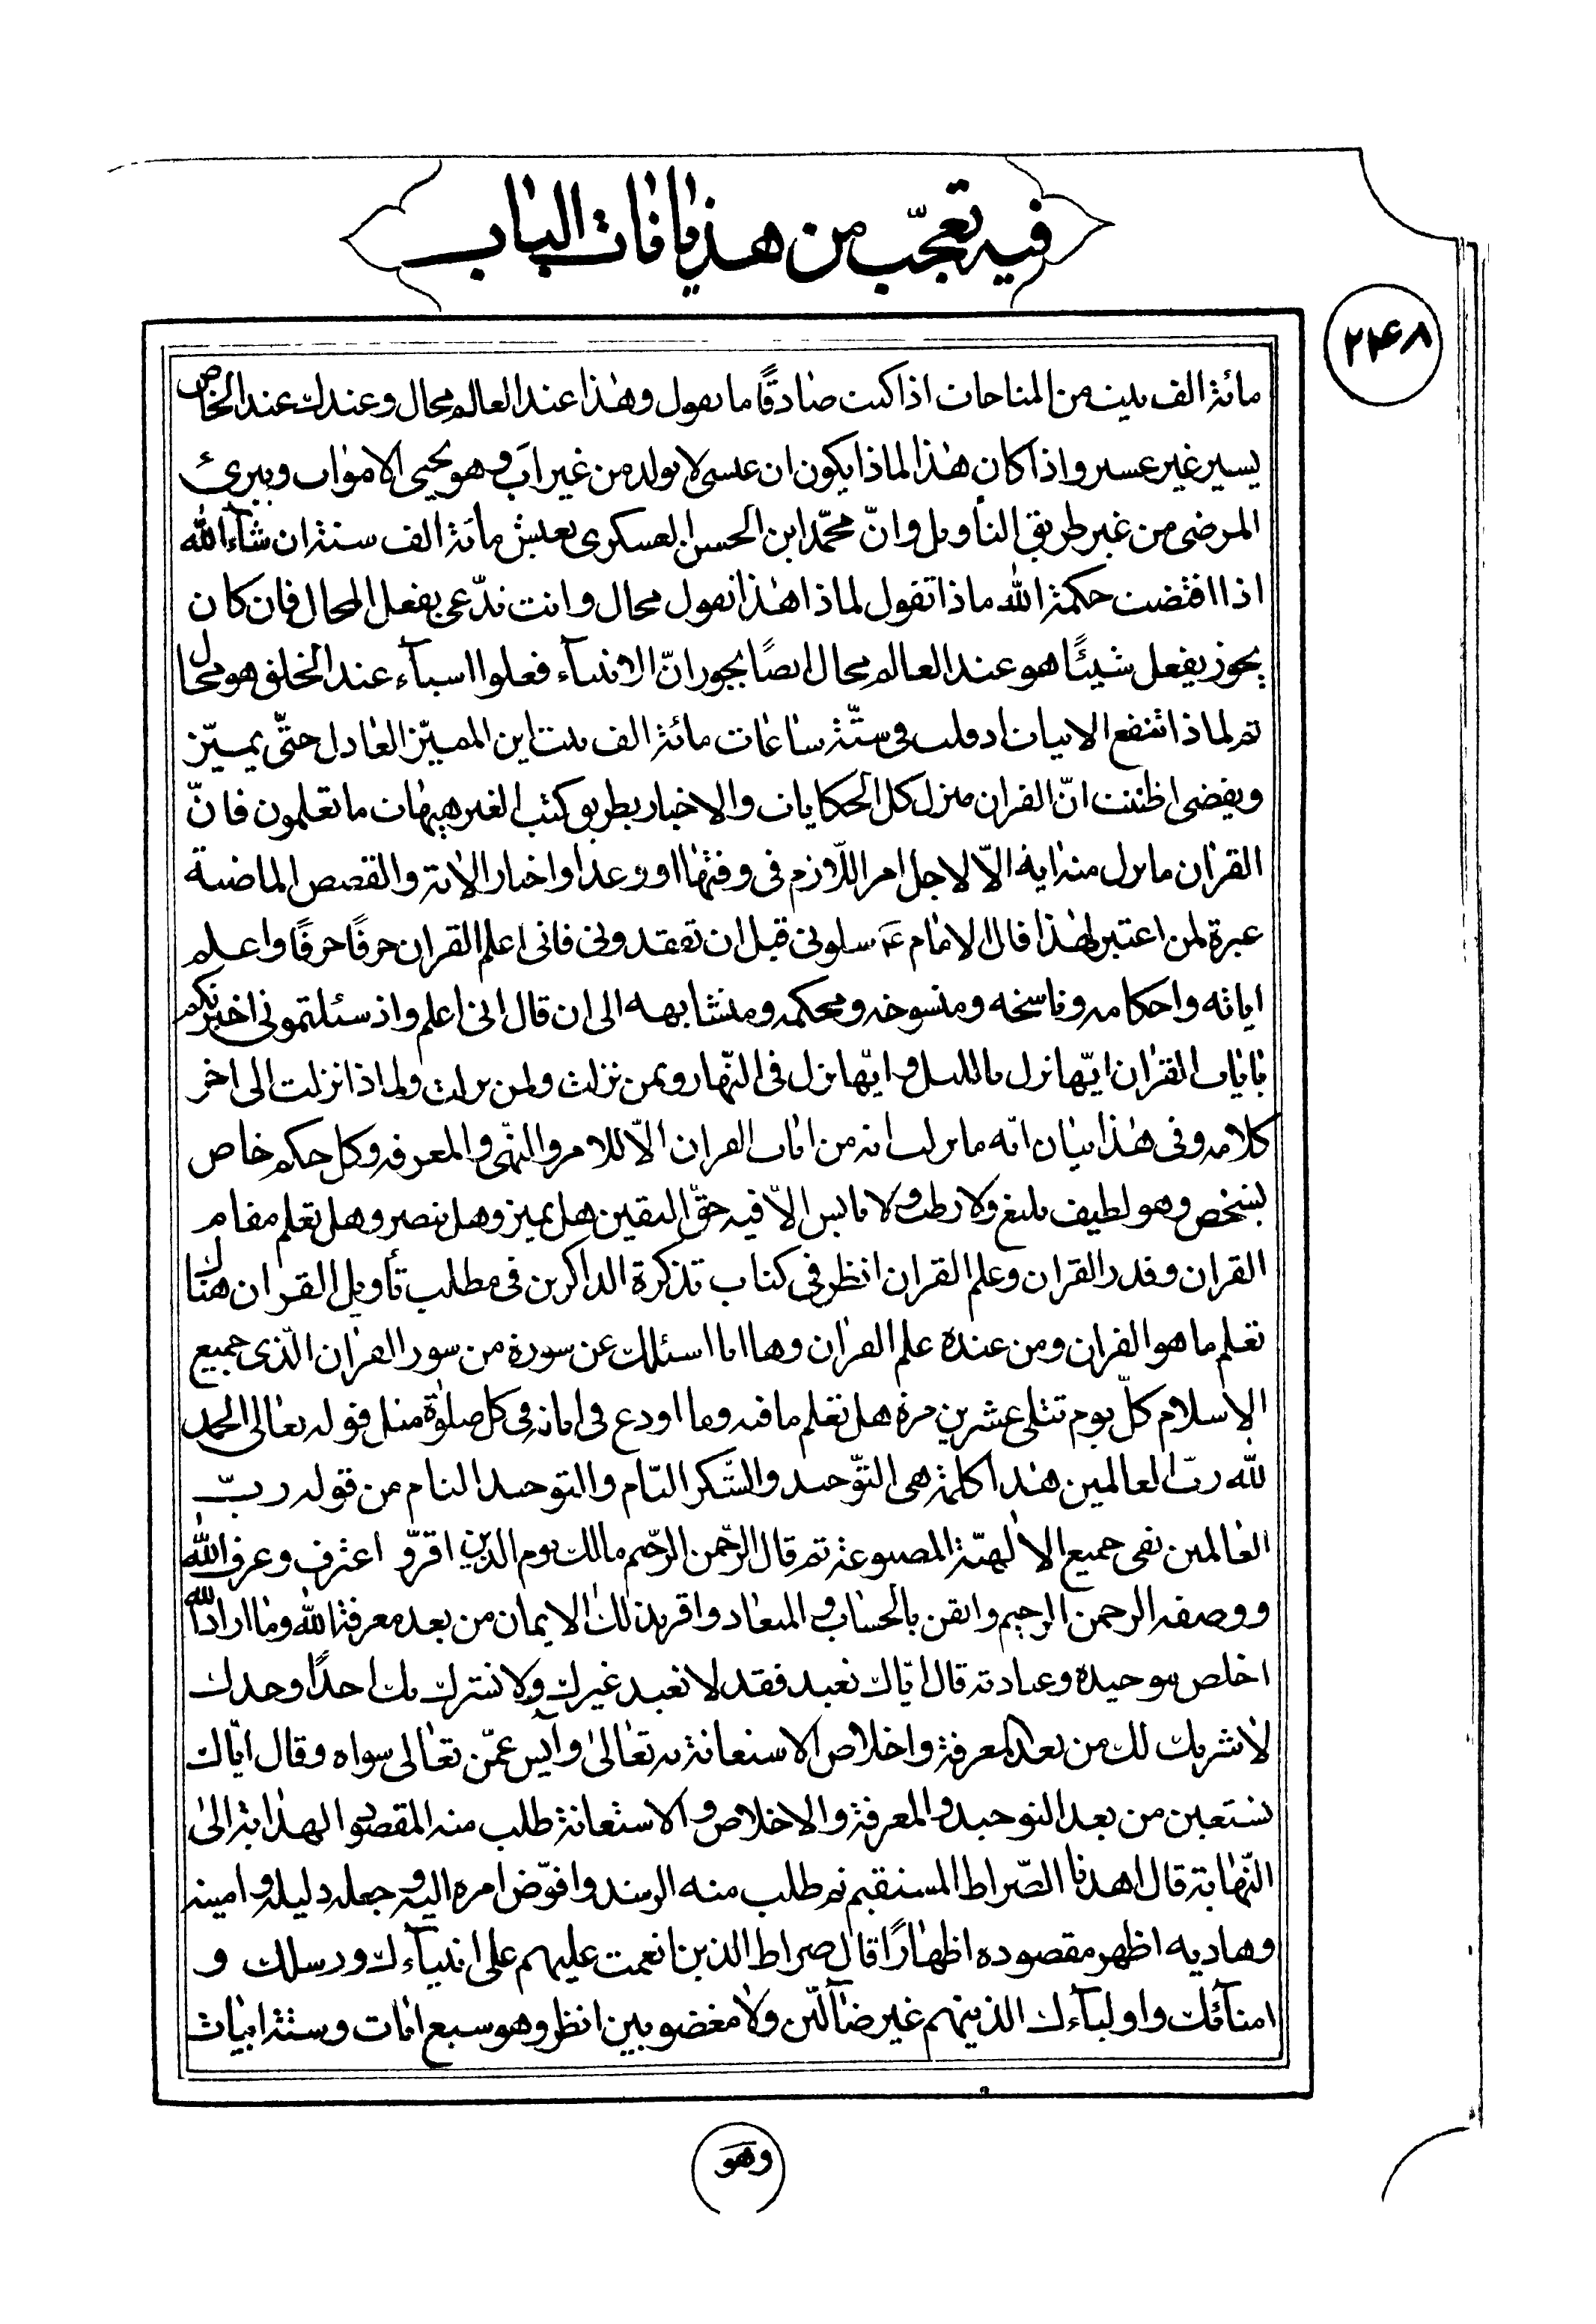 فيه تعجّب من هذيانات الباب
٢٤٨
مائة الف بيت من المناجات اذا كنت صادقًا ما يقول وهذا عند العالم محال وعندك عند الخاص
يسير غير عسير واذا كان هذا لماذا يكون ان عيسى لا يولد من غير اب وهو يحيى الاموات ويبرئ
المرضى من غير طريق التأويل وانّ محمّد ابن الحسن العسكرى يعيش مائة الف سنة ان شآء الله
اذا اقتضت حكمة الله ماذا تقول لماذا هذا تقول محال وانت تدّعى بفعل المحال فان كان
يجوز يفعل شيئًا هو عند العالم محال ايضًا يجوز انّ الانبيآء فعلوا اشيآء عند الخلق هو محال
ثم لماذا تنفع الابيات اذ قلت فى ستّة ساعات مائة الف بيت اين المميّز العادل حتّى يميّز
ويقضى اظننت انّ القران منزل كل الحكايات والاخبار بطريق كتب الغير هيهات ما تعلمون فانّ
القران ما نزل منه اية الّا لاجل امر اللّازم فى وقتها او وعدا واخبار الاتية والقصص الماضية
عبرة لمن اعتبر لهذا قال الامام ع سلونى قبل ان تفقدونى فانى اعلم القران حرفًا حرفًا واعلم
اياته واحكامه وناسخه ومنسوخه ومحكمه ومتشابهه الى ان قال انى اعلم واذ سئلتمونى اخبرتكم
بايات القران ايّها نزل بالليل وايّها نزل فى النّهار وبمن نزلت ولمن نزلت ولماذا نزلت الى اخر
كلامه وفى هذا بيان انّه ما نزلت اية من ايات القران الّا للامر والنّهى والمعرفة وكل حكم خاص
بشخص وهو لطيف بليغ ولا رطب ولا يابس الّا فيه حقّ اليقين هل يميز وهل تبصر وهل تعلم مقام
القران وقدر القران وعلم القران انظر فى كتاب تذكرة الذاكرين فى مطلب تأويل القران هناك
تعلم ما هو القران ومن عنده علم القران وها انا اسئلك عن سورة من سور القران الّذى جميع
الاسلام كلّ يوم تتلى عشرين مرة هل تعلم ما فيه وما اودع فى اياته فى كل صلوة مثل قوله تعالى الحمد
لله ربّ العالمين هذا كلمة هى التّوحيد والشّكر التّام والتوحيد التام من قوله ربّ
العالمين نفى جميع الالهيّة المصنوعة ثم قال الرّحمن الرّحيم مالك يوم الدين اقرّ و اعترف وعرف الله
ووصفه الرحمن الرحيم وايقن بالحساب والمعاد واقر بذلك الايمان من بعد معرفة الله وما اراد الله
اخلص بتوحيده وعبادته قال ايّاك نعبد فقد لا نعبد غيرك ولا نشرك بك احدًا وحدك
لا شريك لك من بعد المعرفة واخلاص الاستعانة به تعالى وآيس عمّن تعالى سواه وقال ايّاك
نستعين من بعد التوحيد والمعرفة والاخلاص والاستعانة طلب منه المقصود الهداية الى
النّهاية قال اهدنا الصّراط المستقيم ثم طلب منه الرشد وافوّض امره اليه وجعله دليله وامينه
وهاديه اظهر مقصوده اظهارًا قال صراط الذين انعمت عليهم على انبيآءك ورسلك و
امنآئك واوليآءك الذينهم غير ضآلّين ولا مغضوبين انظر وهو سبع ايات وستّة ابيات
وهو